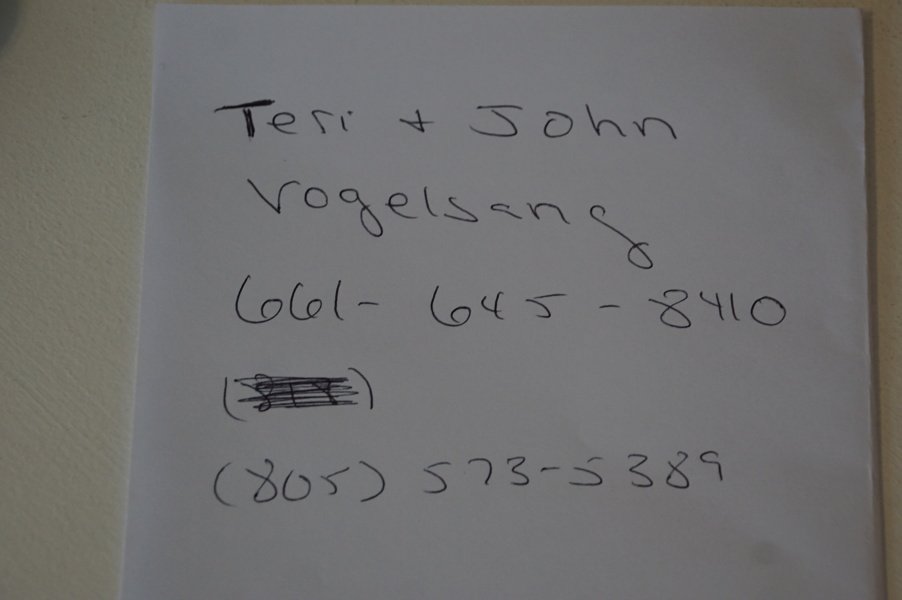 Teri + John
Vogelsang
661- 645 - 8410
(805) 573-5389